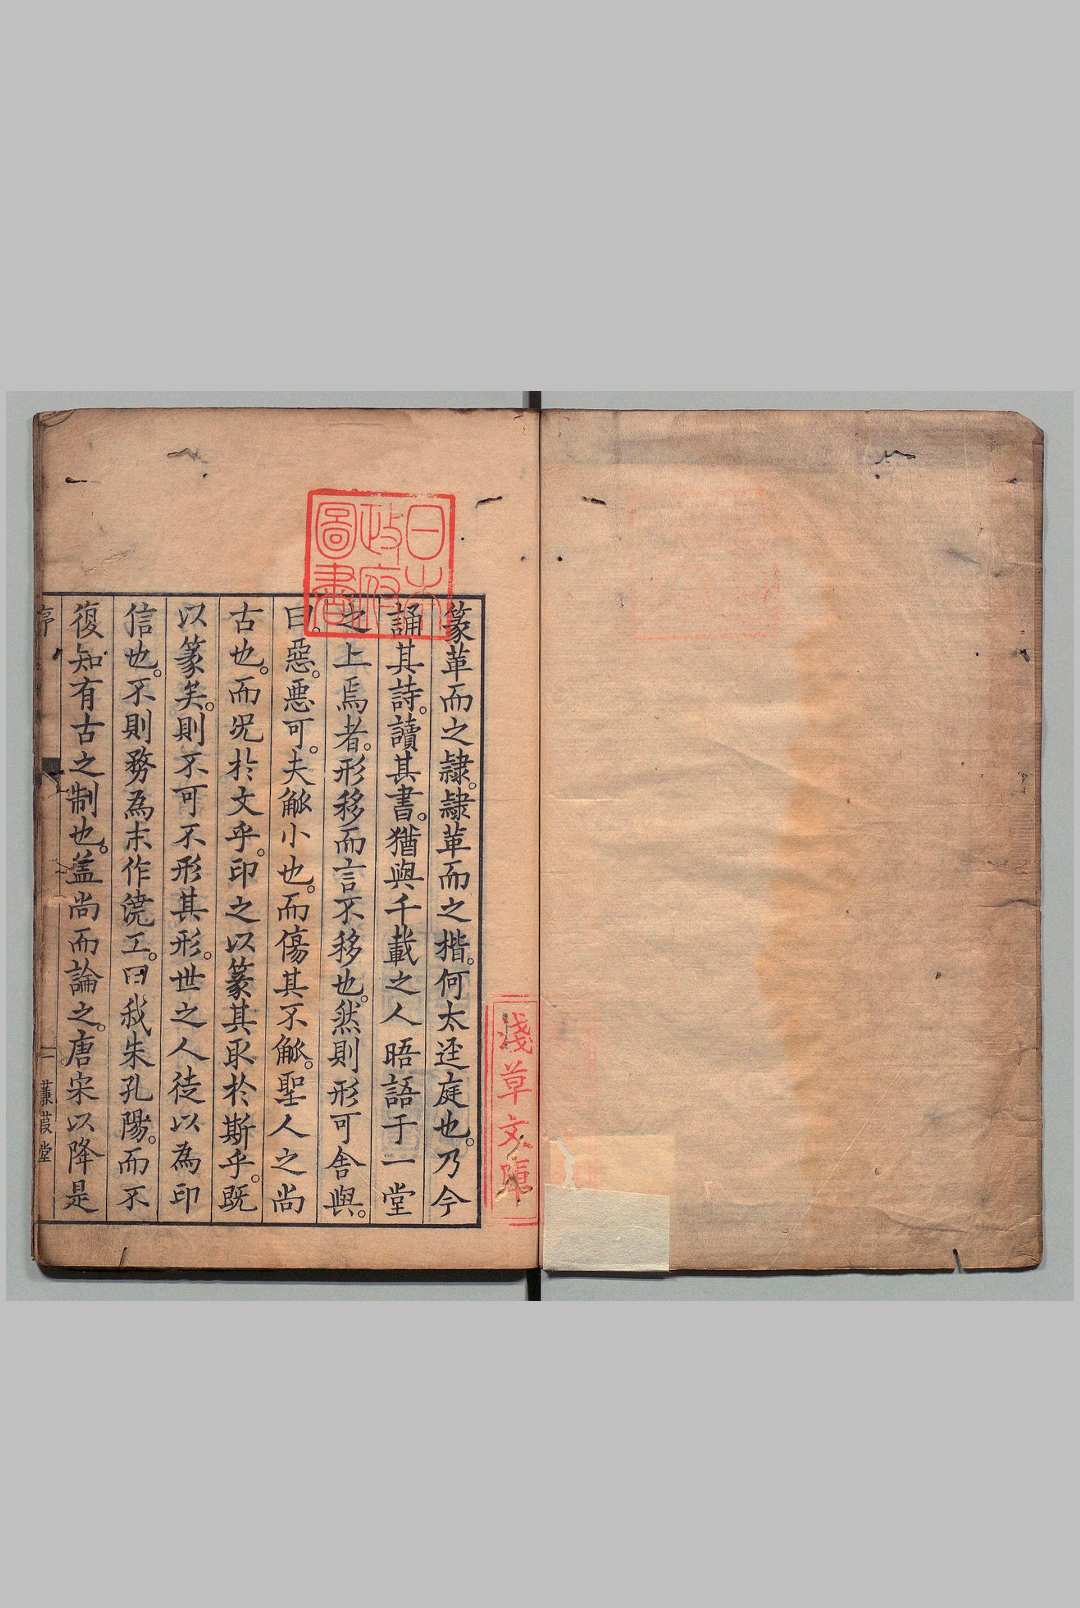 篆革而之隷。隷革而之楷。何太逕庭也。乃今
誦其詩。讀其書。猶與千載之人晤語于一堂
之上焉者。形移而言不移也。然則形可舍與。
曰。惡。惡可。夫觚小也。而傷其不觚。聖人之尚
古也。而況於文乎。印之以篆其取於斯乎。既
以篆矣。則不可不形其形。世之人徒以為印
信也。不則務為末作澆工。曰我朱孔陽。而不
復知有古之制也。盖尚而論之。唐宋以降是
序
一
蒹葭堂
日本
政府
圖書
淺草文庫